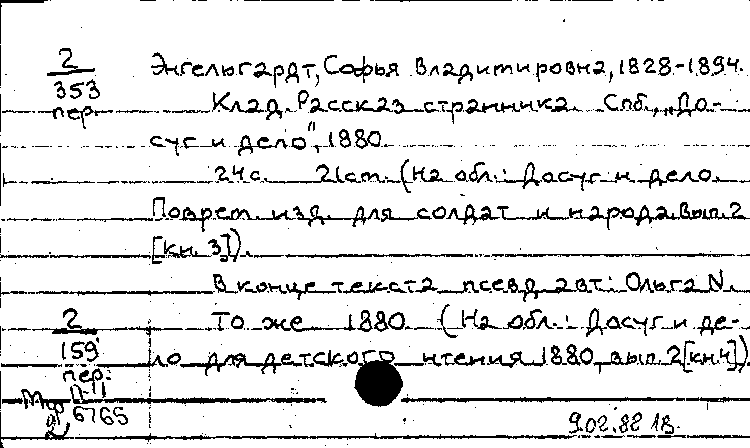 2
353
пер.
Энгельгардт, Софья Владимировна, 1828-1894.
Клад. Рассказ странника. Спб., „До-
суг и дело", 1880.
24с. 21см. (На обл.: Досуг и дело.
Поврем. изд. для солдат и народа. Вып. 2
[кн. 3]).
В конце текста псевд. авт: Ольга N.
2
159
пер.
То же 1880. (На обл.: Досуг и де-
ло для детского чтения 1880, вып. 2 [кн4])
6765
9.02.82